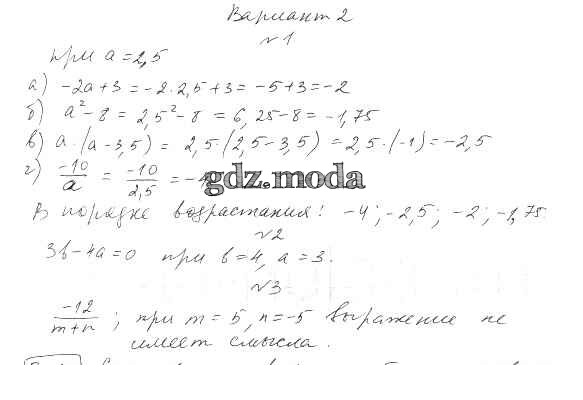 Вариант 2
№1
при a = 2,5
а) -2a+3 = -2·2,5+3 = -5+3 = -2
б) a²-8 = 2,5²-8 = 6,25-8 = -1,75
в) a·(a-3,5) = 2,5·(2,5-3,5) = 2,5·(-1) = -2,5
г) -10/a = -10/2,5 = -4
gdz.moda
В порядке возрастания: -4; -2,5; -2; -1,75.
№2
3b-4a=0 при b=4, a=3.
№3
-12/(m+n); при m=5, n=-5 выражение не
имеет смысла.